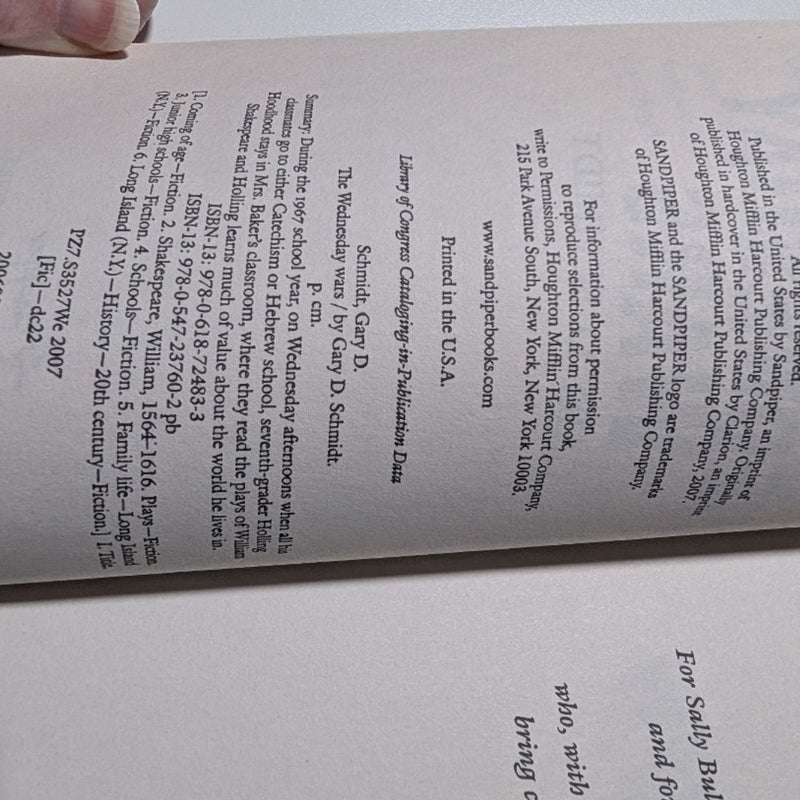 All rights reserved.
Published in the United States by Sandpiper, an imprint of
Houghton Mifflin Harcourt Publishing Company. Originally
published in hardcover in the United States by Clarion, an imprint
of Houghton Mifflin Harcourt Publishing Company, 2007.
SANDPIPER and the SANDPIPER logo are trademarks
of Houghton Mifflin Harcourt Publishing Company.
For information about permission
to reproduce selections from this book,
write to Permissions, Houghton Mifflin Harcourt Company,
215 Park Avenue South, New York, New York 10003.
www.sandpiperbooks.com
Printed in the U.S.A.
Library of Congress Cataloging-in-Publication Data
Schmidt, Gary D.
The Wednesday wars / by Gary D. Schmidt.
p. cm.
Summary: During the 1967 school year, on Wednesday afternoons when all his
classmates go to either Catechism or Hebrew school, seventh-grader Holling
Hoodhood stays in Mrs. Baker's classroom, where they read the plays of William
Shakespeare and Holling learns much of value about the world he lives in.
ISBN-13: 978-0-618-72483-3
ISBN-13: 978-0-547-23760-2 pb
[1. Coming of age—Fiction. 2. Shakespeare, William, 1564-1616. Plays—Fiction.
3. Junior high schools—Fiction. 4. Schools—Fiction. 5. Family life—Long Island
(N.Y.)—Fiction. 6. Long Island (N.Y.)—History—20th century—Fiction.] I. Title.
PZ7.S3527We 2007
[Fic]—dc22
For Sally Bul
and fo
who, with
bring c